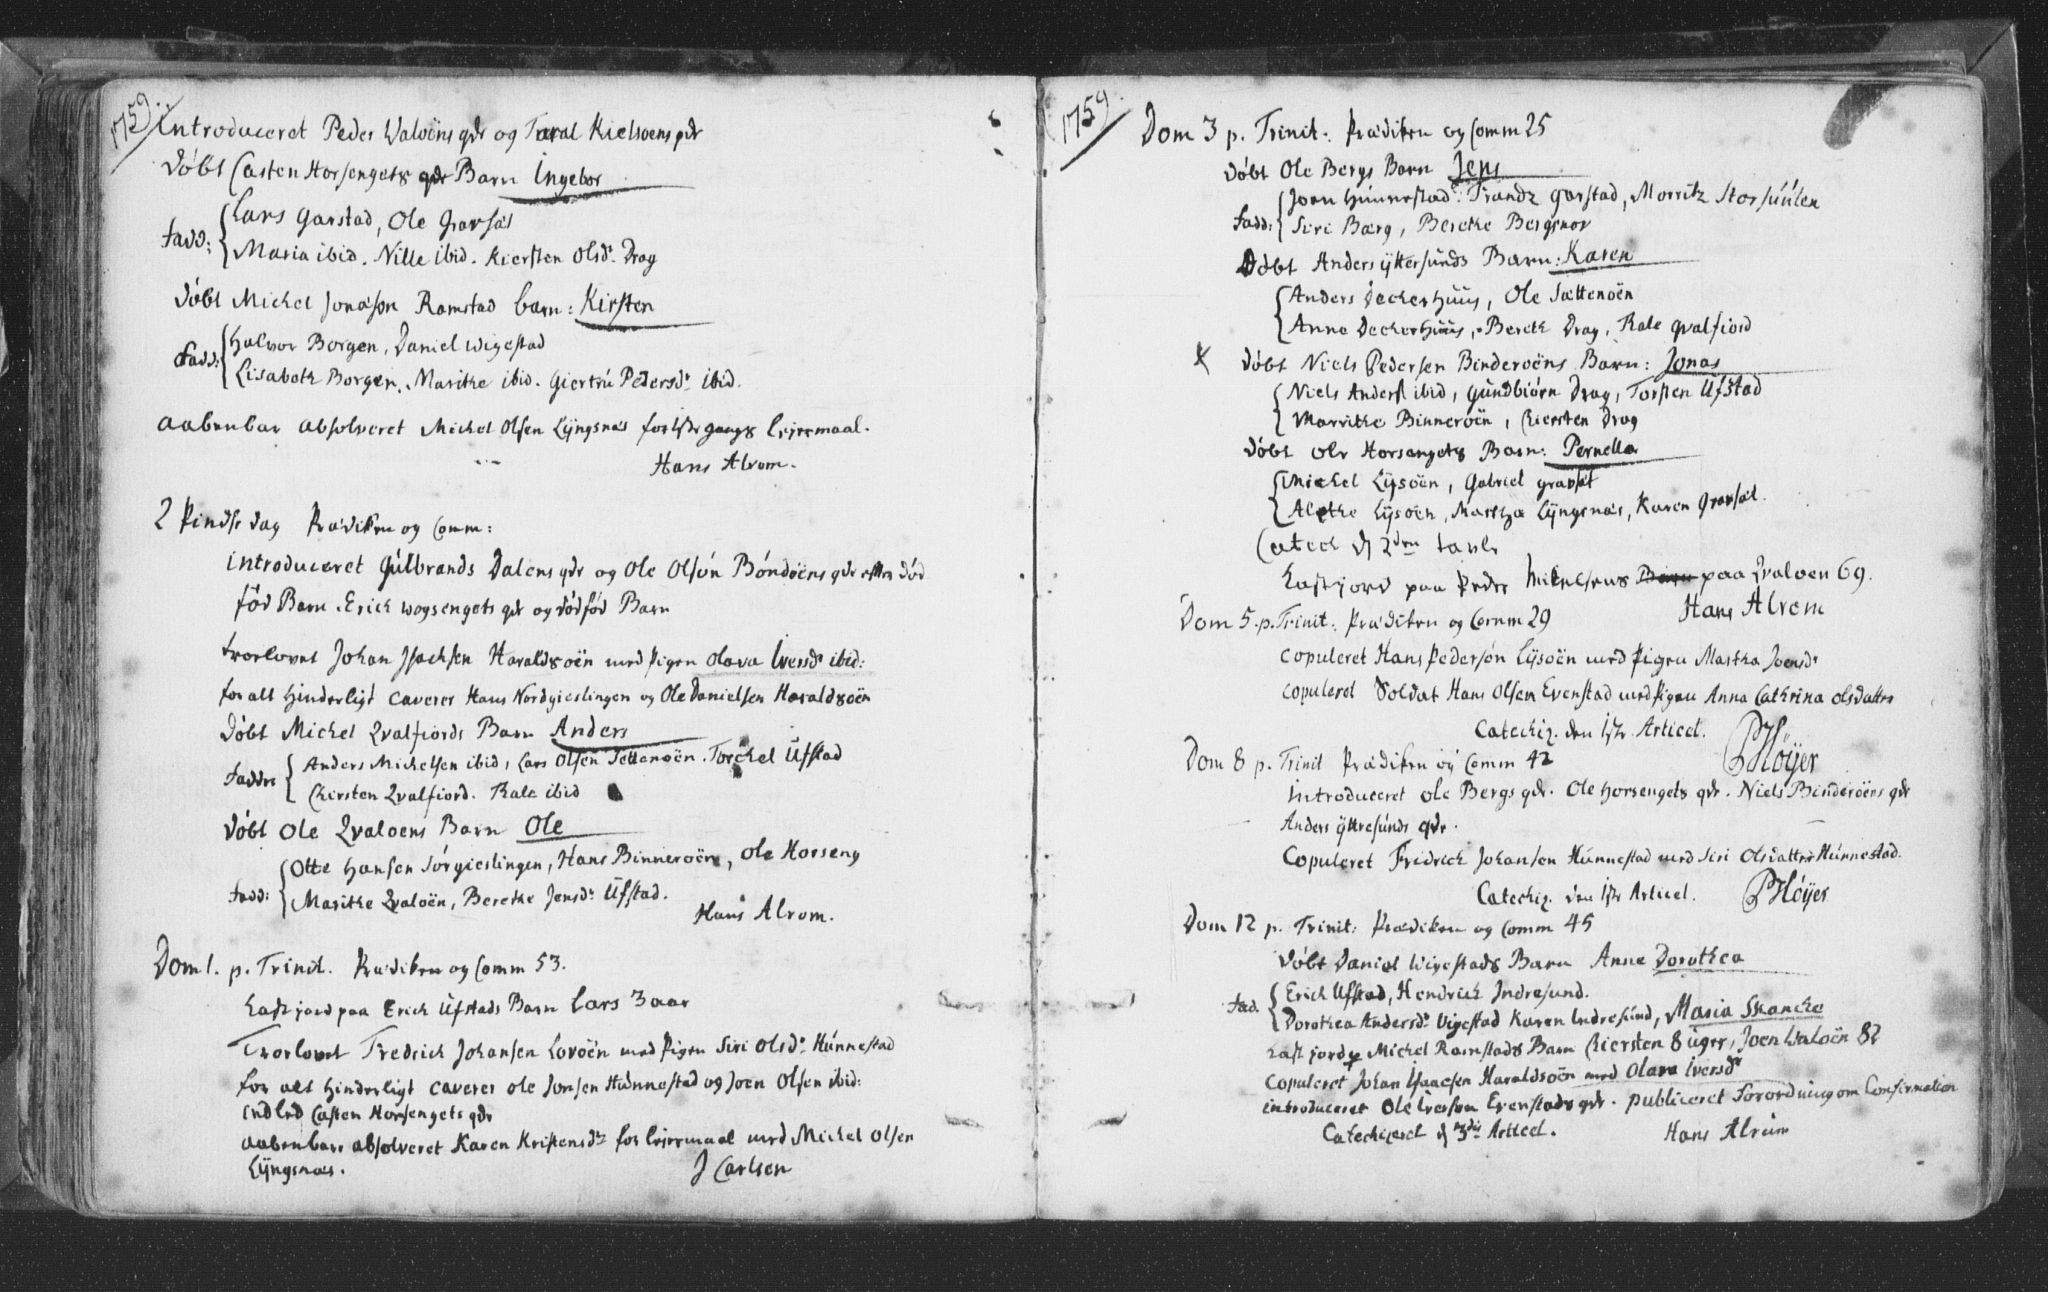 1759.
Introduceret Peder Waloëns qdr og Taral Kielsoens qdr
Döbt Casten Horsengets qdr Barn Ingebor
Lars Garstad, Ole Gravsæt
Fadd: Maria ibid. Nille ibid. Kiersten Olsdr Drag
Döbt Michel Jonæson Ramstad barn: Kirsten
Halvor Borgen, Daniel Wigestad
Fadd: Lisabeth Borgen. Maritte ibid. Giertru Pedersdr ibid.
Aabenbar absolveret Michel Olsen Lÿngsnæs for 1ste gangs leiermaal.
Hans Alrom.
2 Pindse dag Prædiken og Comm:
Introduceret Gulbrands Dalens qdr og Ole Olsön Böndöens qdr efter död
föd Barn. Erich wogsengets qdr og dödföd Barn
Trorlovet Johan Isachsen Haraldsoën med Pigen Olava Iversdr ibid:
for alt hinderligt caverer Hans Nordgieslingen og Ole Danielsen Haraldsoën
Döbt Michel Qvalfiords Barn Anders
Anders Michelsen ibid, Lars Olsen Settenoën. Torchel Ufstad
Faddre Chirsten Qvalfiord. Rale ibid
Döbt Ole Qvaloens Barn Ole
Otte Hansen Sörgieslingen, Hans Binneroën, Ole Horseng
Fadd: Maritte Qvaloën, Berette Jensdr Ufstad.
Hans Alrom.
Dom 1. p. Trinit. Prædiken og Comm 53.
Kast jord paa Erich Ufstads Barn Lars 3 aar
Trorlovet Fredrich Johansen Lovoën med Pigen Siri Olsdr Hunnestad
for alt hinderligt caverer Ole Jonsen Hunnestad og Joen Olsen ibid:
Indled Casten Horsengets qdr
Aabenbare absolveret Karen Kristensdr for leiermaal med Michel Olsen
Lÿngsnæs.
J Carlsen
1759.
Dom 3 p. Trinit: Prædiken og Comm 25
Döbt Ole Bergs Barn Jens
Joen Hunnestad. Trandz Garstad, Morritz Storsuulen
Fadd: Siri Bærg, Berette Bergsnov
Döbt Anders ÿttersunds Barn: Karen
Anders Deckerhuus, Ole Sættenoën
Anne Deckerhuus, Bereth Drag, Rale Qvalfiord
x Döbt Niels Pedersen Binderoëns Barn: Jonas
Niels Anders ibid, Gundbiörn Drag, Torsten Ufstad
Marritte Binneroën, Chiersten Drag
Döbt Ole Horsengets Barn: Pernella
Michel Lÿsoën, Gabriel gravsæt
Alethe Lÿsoën, Martha Lÿngsnæs, Karen Gravsæt.
Catech d 2den tavle
Kast jord paa Peder Mikelsens Barn paa Qvaloen 69.
Hans Alrom
Dom 5. p. Trinit: Prædiken og Comm 29
Copuleret Hans Pedersön Lÿsoën med Pigen Martha Joensdr
Copuleret Soldat Hans Olsen Evenstad med Pigen Anna Cathrina Olsdatter
Catechiz. den 1ste Articel.
PHöÿer
Dom 8 p. Trinit Prædiken og Comm 42
Introduceret Ole Bergs qdr. Ole Horsengets qdr. Niels Binderöens qdr
Anders ÿttresunds qdr.
Copuleret Fridrich Johansen Hunnestad med Siri Olsdatter Hunnestad.
Catechiz. den 1ste Articel. PHöÿer
Dom 12 p. Trinit: Prædiken og Comm 45
Döbt Daniel Wigestads Barn Anne Dorothea
Erich Ufstad, Hendrich Indresund.
Fad. Dorothea Andersdr Vigestad Karen Indresund, Maria Skancke
Kast jord p Michel Ramstads Barn Chiersten 8 uger, Joen Waloën 82
Copuleret Johan Isaacsen Haraldsoën med Olava Iversdr
Introduceret Ole Iversen Evenstads qdr. Publiceret Forordning om Confirmation
Catechiceret d 3die Articel. Hans Alrum